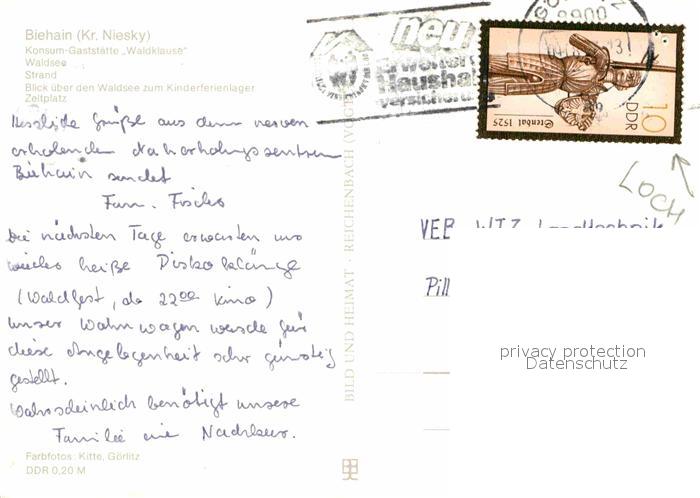 Biehain (Kr. Niesky)
Konsum-Gaststätte „Waldklause"
Waldsee
Strand
Blick über den Waldsee zum Kinderferienlager
Zeltplatz
Herzliche Grüße aus dem nerven
erholenden Naherholungszentrum
Biehain sendet
Fam.
Die nächsten Tage erwarten uns
wieder heiße Diskoklänge
(Waldfest, ab 22⁰⁰ Kino)
Unser Wohnwagen wurde für
diese Angelegenheit sehr günstig
gestellt.
Wahrscheinlich benötigt unsere
Familie eine Nachkur.
Farbfotos: Kitte, Görlitz
DDR 0,20 M
BILD UND HEIMAT · REICHENBACH (VOGTL
neu
Erweitert
Haushalt
versicheru
8900
10
DDR
Stendal 1525
LOCH
VEB WTZ Landtechnik
Pill
privacy protection
Datenschutz